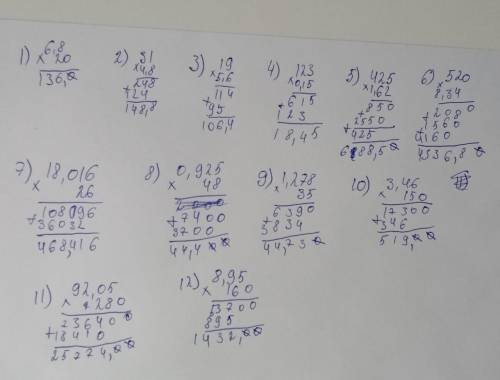 1) 6,8
× 20
136,0
2) 31
× 4,8
248
+
124
148,8
3) 19
× 5,6
114
+
95
106,4
4) 123
× 0,15
615
+
123
18,45
5) 425
× 1,62
850
+
2550
+
425
688,50
6) 520
× 8,34
2080
+
1560
+
4160
4336,80
7) 18,016
× 26
108096
+
36032
468,416
8) 0,925
× 48
+
7400
3700
44,400
9) 1,278
× 35
6390
+
3834
44,730
10) 3,46
× 150
17300
+
346
519,00
11) 92,05
× 280
+
18410
25774,00
12) 8,95
× 160
53700
895
1432,00